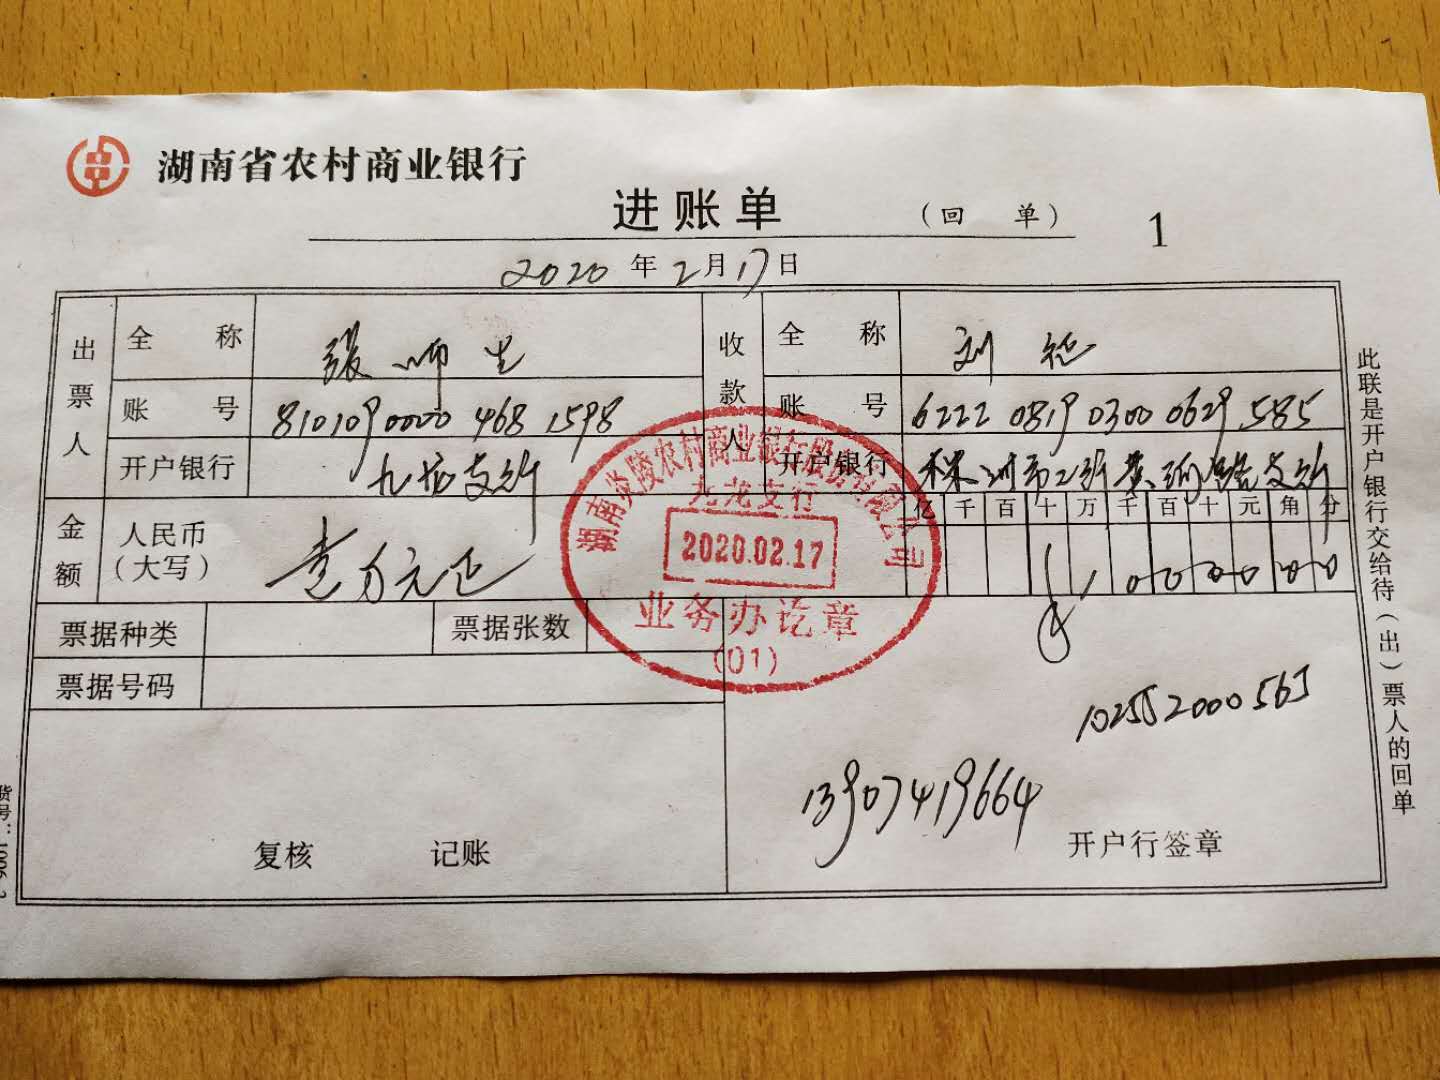 湖南省农村商业银行
进账单 (回 单) 1
2020 年 2 月 17 日
出票人 全 称 张师生 收款人 全 称 刘
账 号 81010900004681598 账 号 6222 0819 0300 0629 585
开户银行 九龙支行 开户银行 株洲市工行黄河路支行
金额 人民币(大写) 壹万元正 亿 千 百 十 万 千 百 十 元 角 分
¥ 1 0 0 0 0 0 0
票据种类 票据张数
票据号码
102552000565
13907419664
复核 记账 开户行签章
湖南炎陵农村商业银行股份有限公司
九龙支行
2020.02.17
业务办讫章
(01)
此联是开户银行交给待(出)票人的回单
货号: